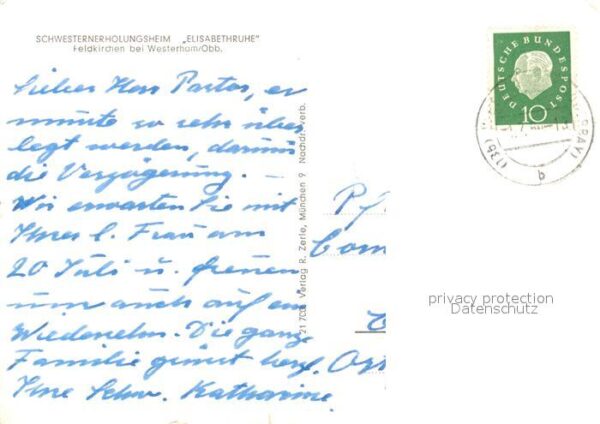 SCHWESTERNERHOLUNGSHEIM „ELISABETHRUHE"
Feldkirchen bei Westerham/Obb.
Lieber Herr Pastor, es
musste so sehr über
legt werden, darum
die Verzögerung. —
Wir erwarten Sie mit
Ihrer l. Frau am
20 Juli u. freuen
uns auch auf ein
Wiedersehn. Die ganze
Familie grüsst herzl.
Ihre Schw. Katharina.
Verlag R. Zerle, München 9 Nachdr. verb.
DEUTSCHE BUNDESPOST
10
privacy protection
Datenschutz